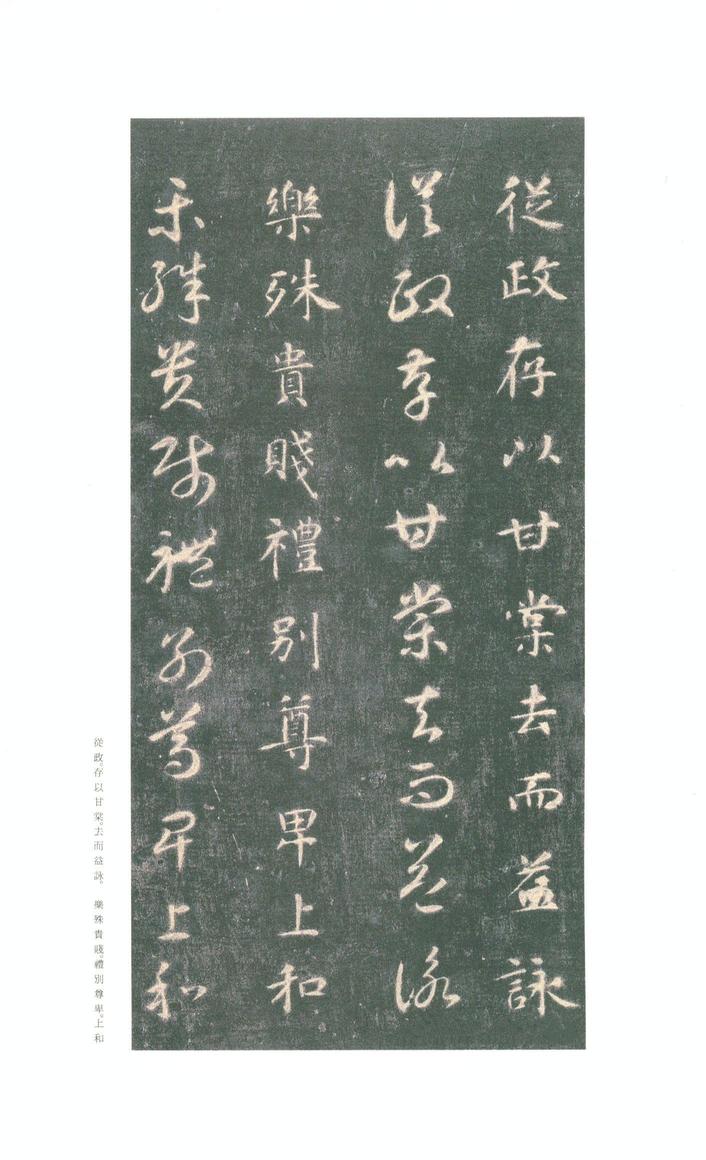 從政存以甘棠去而益詠
從政存以甘棠去而益詠
樂殊貴賤禮別尊卑上和
樂殊貴賤禮別尊卑上和
從政。存以甘棠。去而益詠。 樂殊貴賤。禮別尊卑。上和